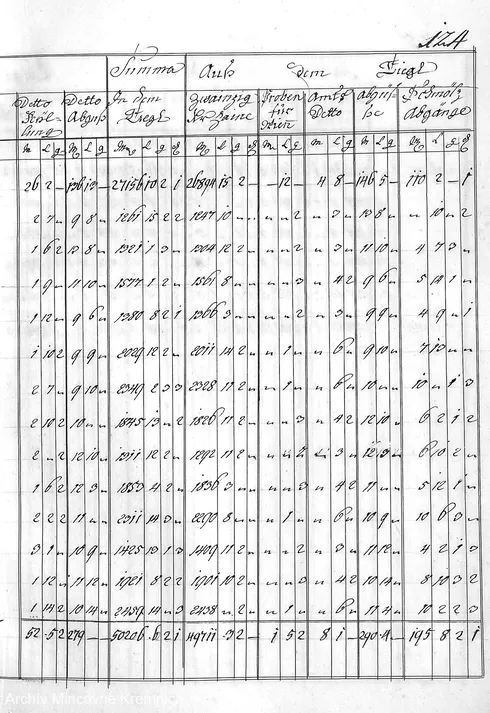 124
Summa Auß dem Tiegl
Detto Detto In dem Zwainzig Proben Ambts abgüß Schmölz
Abguß Tiegl für Detto Abgänge
Wien
M L q M L q M L q M L q M L q M L q M L q
26 2 — 136 13 — 27156 10 2 1 26894 15 2 — — 12 — 4 8 — 146 5 — 110 2 — 1
2 7 9 8 1261 15 2 2 1247 10 2 3 13 8 10 2
1 6 2 13 8 1321 1 3 1304 12 2 2 3 11 10 4 7 3
1 9 11 10 1577 1 2 1561 8 3 4 2 9 6 5 14 1
1 12 9 6 1380 8 2 1 1366 3 2 3 9 9 4 9 1
1 10 2 9 9 2029 12 2 2011 14 2 1 6 9 10 7 13
2 7 9 10 2349 2 3 3 2328 11 2 1 6 10 10 1 3
2 10 2 10 1845 13 2 1826 11 2 3 4 2 12 10 6 2 1 2
2 2 12 10 1311 12 2 1292 11 2 3 6 10 2
1 6 2 12 3 1853 4 2 1836 3 3 4 2 11 5 12 1
2 2 2 11 2311 14 3 2290 8 1 6 10 9 10 6 3
3 1 10 9 1425 13 1 3 1409 11 2 2 3 11 12 4 2 1 3
1 12 11 12 1921 8 2 2 1901 10 2 3 4 2 10 14 8 10 3 2
1 14 2 10 14 2459 14 3 2438 2 1 6 11 4 10 2 2 3
52 5 2 279 — — 50206 6 2 1 49711 3 2 — 1 5 2 8 1 — 290 4 — 195 8 2 1
Archív Mincovne Kremnica